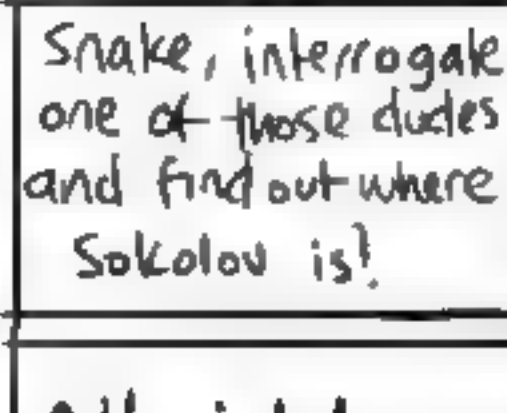 Snake, interrogate
one of those dudes
and find out where
Sokolov is?